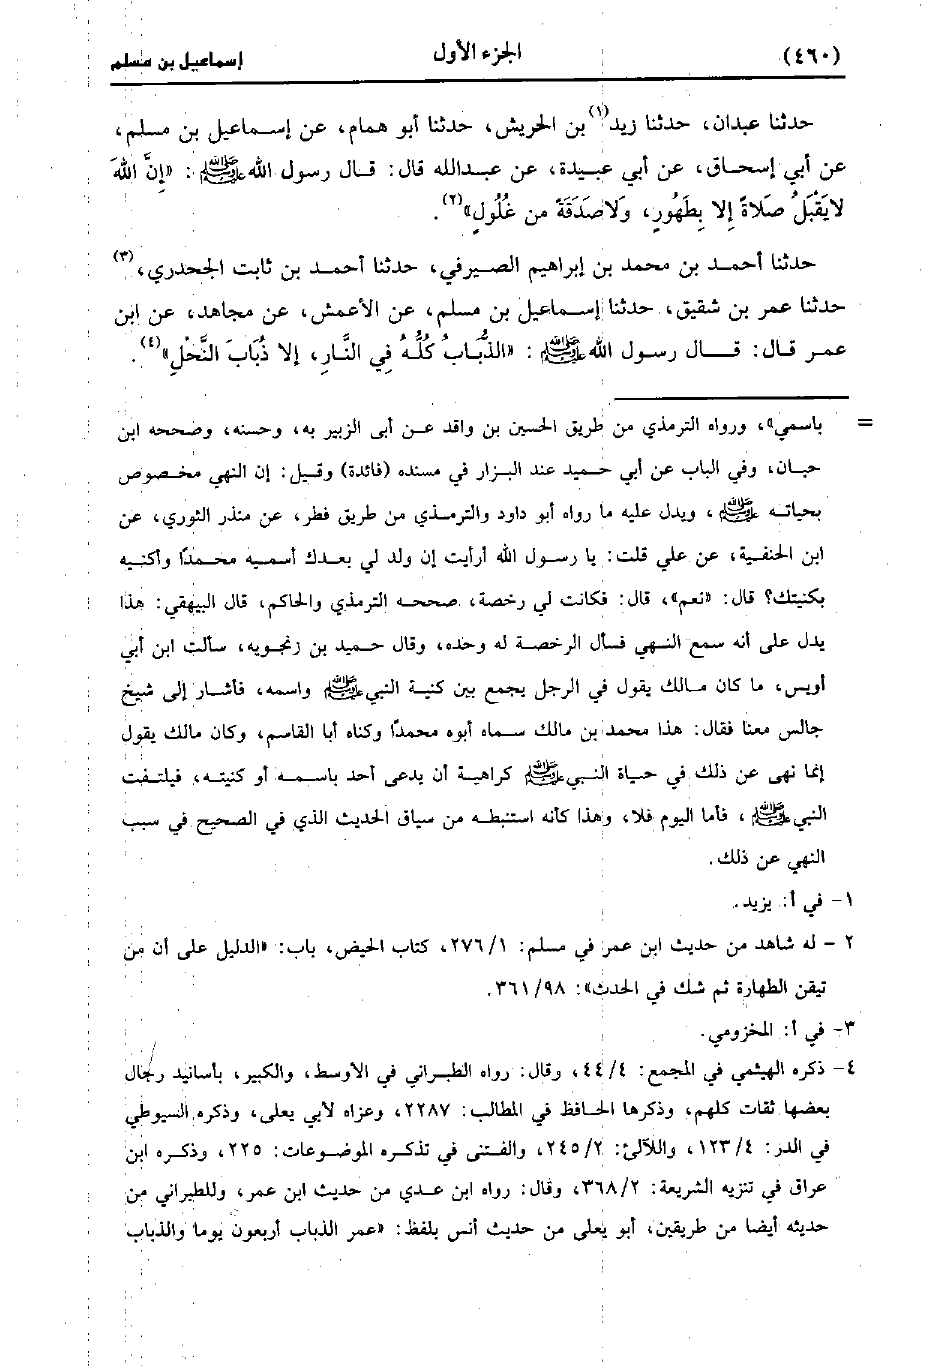 (٤٦٠) الجزء الأول إسماعيل بن مسلم
حدثنا عبدان، حدثنا زيد(١) بن الحريش، حدثنا أبو همام، عن إسماعيل بن مسلم،
عن أبي إسحاق، عن أبي عبيدة، عن عبدالله قال: قال رسول الله ﷺ: «إِنَّ اللهَ
لايَقْبَلُ صَلاةً إلا بِطَهُورٍ، وَلاصَدَقَةً من غُلُولٍ»(٢).
حدثنا أحمد بن محمد بن إبراهيم الصيرفي، حدثنا أحمد بن ثابت الجحدري،(٣)
حدثنا عمر بن شقيق، حدثنا إسماعيل بن مسلم، عن الأعمش، عن مجاهد، عن ابن
عمر قال: قال رسول الله ﷺ: «الذُّبَابُ كُلُّهُ فِي النَّارِ، إلا ذُبَابَ النَّحْلِ»(٤).
= باسمي»، ورواه الترمذي من طريق الحسين بن واقد عن أبى الزبير به، وحسنه، وصححه ابن
حبان، وفي الباب عن أبي حميد عند البزار في مسنده (فائدة) وقيل: إن النهي مخصوص
بحياته ﷺ، ويدل عليه ما رواه أبو داود والترمذي من طريق فطر، عن منذر الثوري، عن
ابن الحنفية، عن علي قلت: يا رسول الله أرأيت إن ولد لي بعدك أسميه محمدًا وأكنيه
بكنيتك؟ قال: «نعم»، قال: فكانت لي رخصة، صححه الترمذي والحاكم، قال البيهقي: هذا
يدل على أنه سمع النهي فسأل الرخصة له وحده، وقال حميد بن زنجويه، سألت ابن أبي
أويس، ما كان مالك يقول في الرجل يجمع بين كنية النبي ﷺ واسمه، فأشار إلى شيخ
جالس معنا فقال: هذا محمد بن مالك سماه أبوه محمدًا وكناه أبا القاسم، وكان مالك يقول
إنما نهى عن ذلك في حياة النبي ﷺ كراهية أن يدعى أحد باسمه أو كنيته، فيلتفت
النبي ﷺ، فأما اليوم فلا، وهذا كأنه استنبطه من سياق الحديث الذي في الصحيح في سبب
النهي عن ذلك.
١- في أ: يزيد.
٢ - له شاهد من حديث ابن عمر في مسلم: ٢٧٦/١، كتاب الحيض، باب: «الدليل على أن من
تيقن الطهارة ثم شك في الحدث»: ٣٦١/٩٨.
٣- في أ: المخزومي.
٤- ذكره الهيثمي في المجمع: ٤٤/٤، وقال: رواه الطبراني في الأوسط، والكبير، بأسانيد رجال
بعضها ثقات كلهم، وذكرها الحافظ في المطالب: ٢٢٨٧، وعزاه لأبي يعلى، وذكره السيوطي
في الدر: ١٢٣/٤، واللآلئ: ٢٤٥/٢، والفتنى في تذكره الموضوعات: ٢٢٥، وذكره ابن
عراق في تنزيه الشريعة: ٣٦٨/٢، وقال: رواه ابن عدي من حديث ابن عمر، وللطبراني من
حديثه أيضا من طريقين، أبو يعلى من حديث أنس بلفظ: «عمر الذباب أربعون يوما والذباب